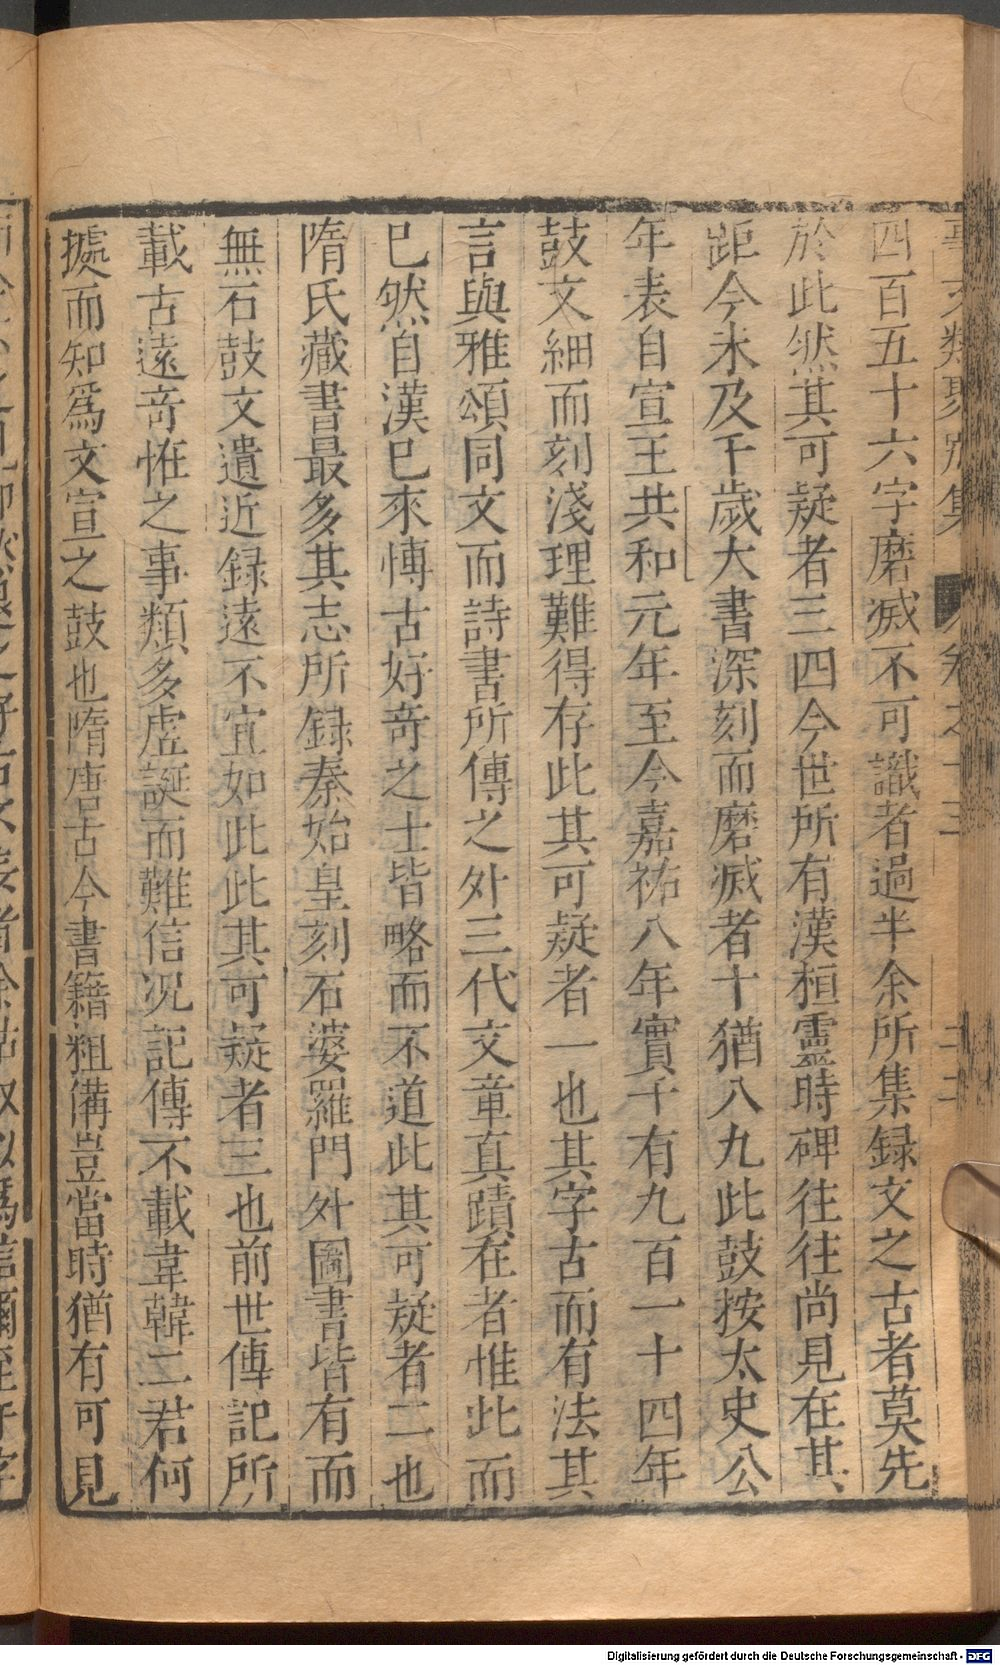 四百五十六字磨滅不可識者過半余所集録文之古者莫先
於此然其可疑者三四今世所有漢桓靈時碑往往尚見在其
距今未及千歲大書深刻而磨滅者十猶八九此鼓按太史公
年表自宣王共和元年至今嘉祐八年實千有九百一十四年
鼓文細而刻淺理難得存此其可疑者一也其字古而有法其
言與雅頌同文而詩書所傳之外三代文章真蹟在者惟此而
已然自漢已來愽古好竒之士皆略而不道此其可疑者二也
隋氏藏書最多其志所録秦始皇刻石婆羅門外圖書皆有而
無石鼓文遺近録遠不宜如此此其可疑者三也前世傳記所
載古遠竒恠之事類多虛誕而難信况記傳不載韋韓二君何
據而知爲文宣之鼓也隋唐古今書籍粗備豈當時猶有可見
Digitalisierung gefördert durch die Deutsche Forschungsgemeinschaft - DFG